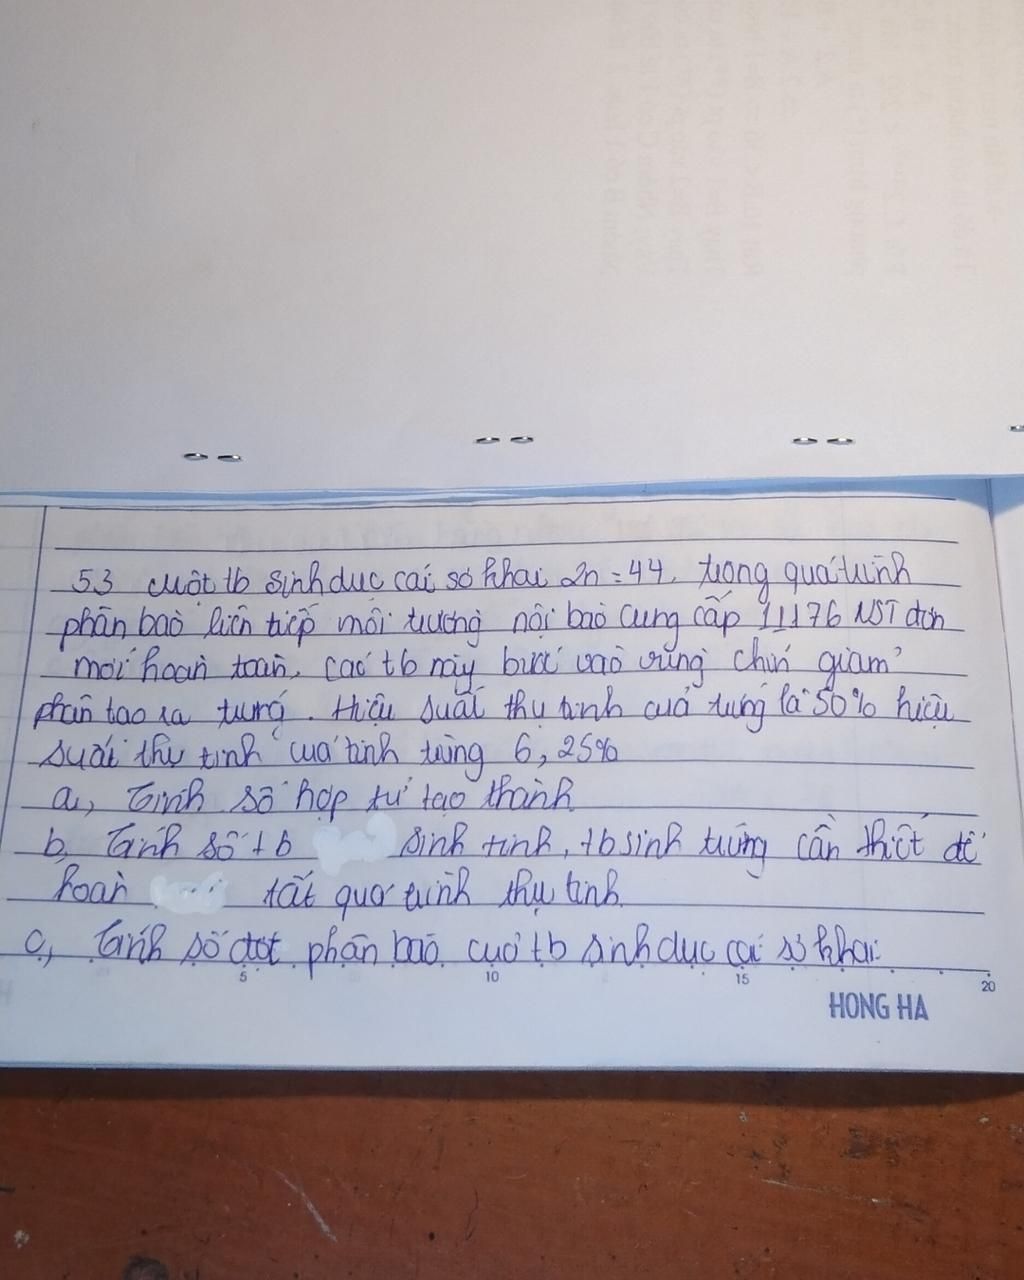 53 Một tb sinh dục cái sơ khai 2n = 44. trong quá trình
phân bào liên tiếp môi trường nội bào cung cấp 11176 NST đơn
mới hoàn toàn, các tb này bước vào vùng chín giảm
phân tạo ra trứng. Hiệu suất thụ tinh của trứng là 50% hiệu
suất thụ tinh của tinh trùng 6,25%
a, Tính số hợp tử tạo thành
b, Tính số tb sinh tinh, tb sinh trứng cần thiết để
hoàn tất quá trình thụ tinh
c, Tính số đợt phân bào của tb sinh dục cái sơ khai
5 10 15 20
HONG HA